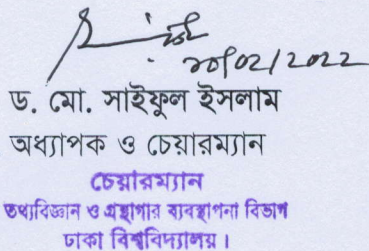 ২০/02/2022
ড. মো. সাইফুল ইসলাম
অধ্যাপক ও চেয়ারম্যান
চেয়ারম্যান
তথ্যবিজ্ঞান ও গ্রন্থাগার ব্যবস্থাপনা বিভাগ
ঢাকা বিশ্ববিদ্যালয়।